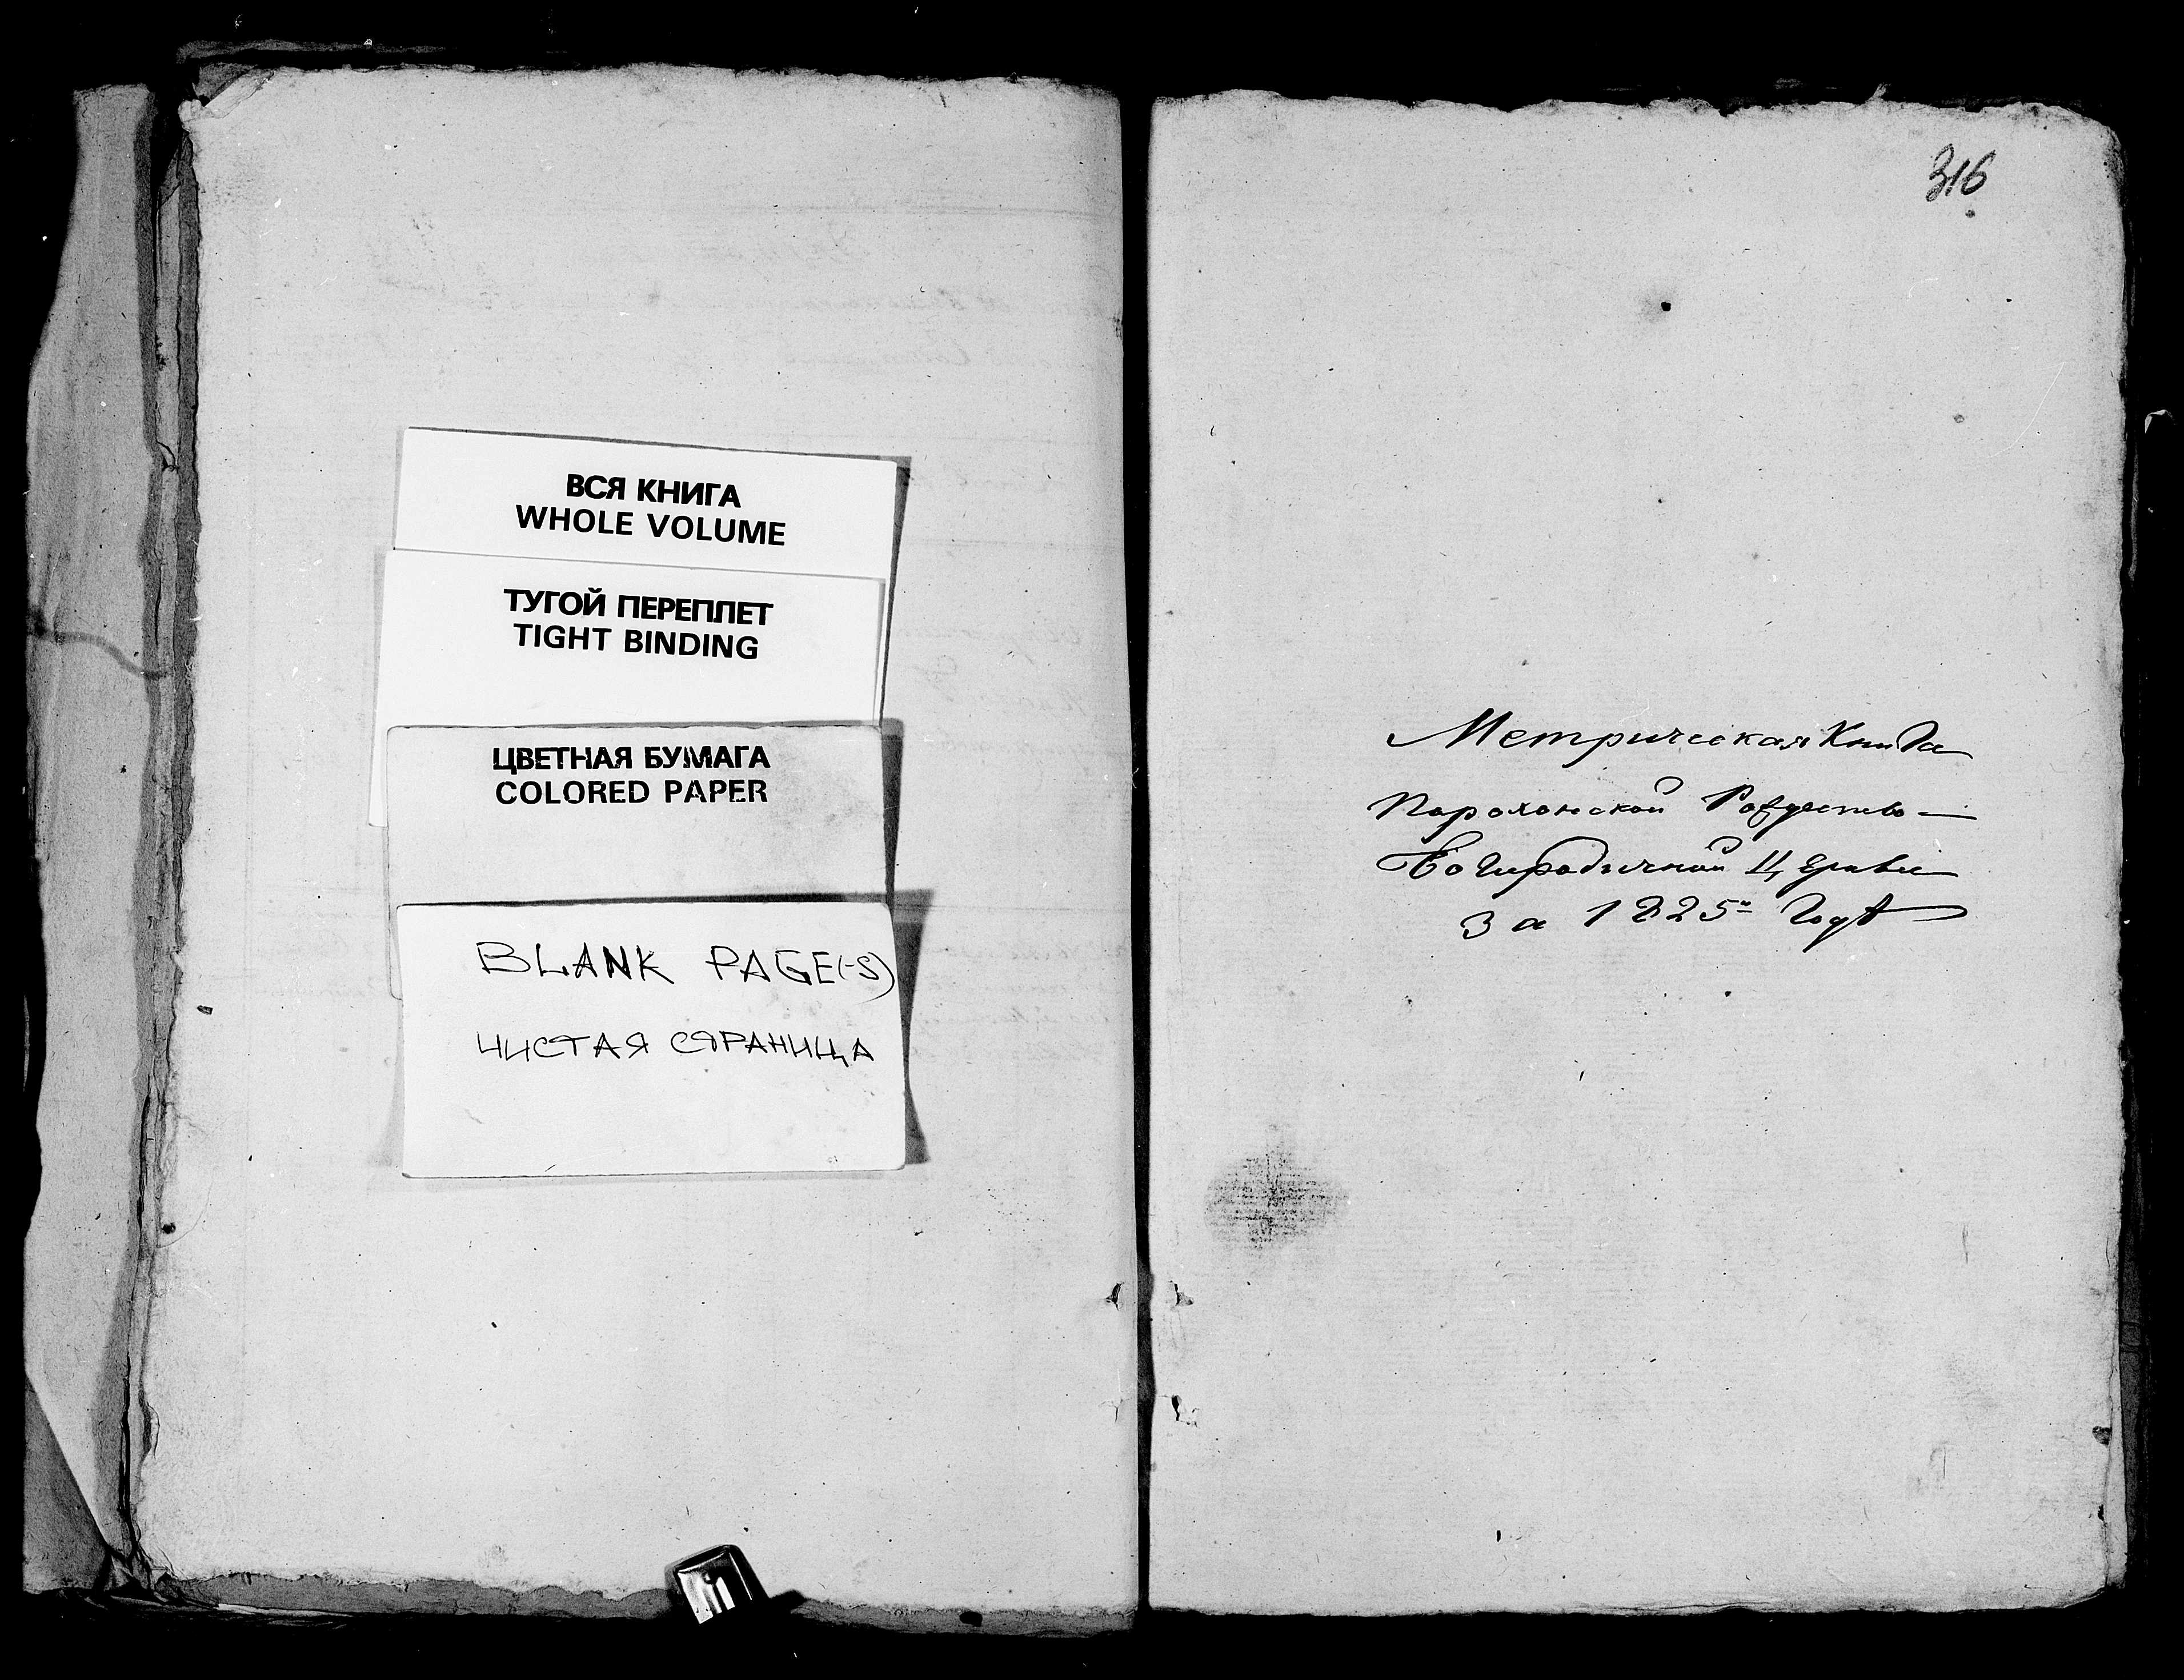 ВСЯ КНИГА
WHOLE VOLUME
ТУГОЙ ПЕРЕПЛЕТ
TIGHT BINDING
ЦВЕТНАЯ БУМАГА
COLORED PAPER
BLANK PAGE(-S)
ЧИСТАЯ СТРАНИЦА
316
Метрическая Книга
Порохонской Рождество —
Богородичной Церкви
За 1825й Годъ